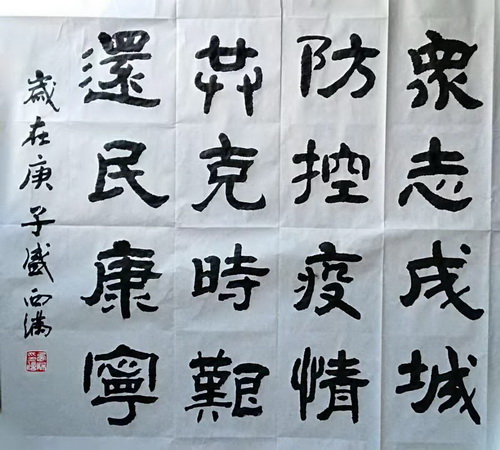 衆志成城
防控疫情
共克時艱
還民康寧
歲在庚子盛西满